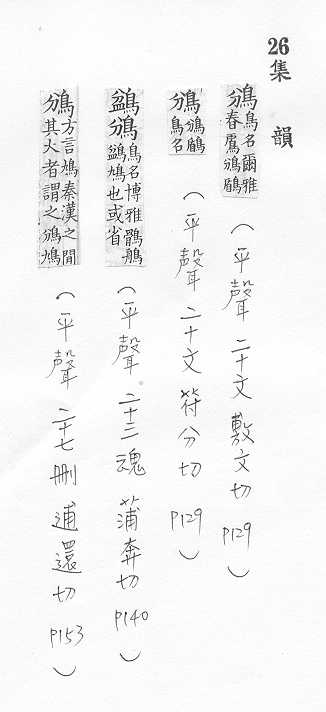 26集 韻
鳻鳥名爾雅
春鳸鳻鶞
(平聲 二十文 敷文切 P129)
鳻鳻鶞
鳥名
(平聲 二十文 符分切 P129)
鳥名博雅鶻鵃
鷁鳩也或省
(平聲 二十三魂 蒲奔切 P140)
鳻方言鳩秦漢之間
其大者謂之鳻鳩
(平聲 二十七刪 逋還切 P153)